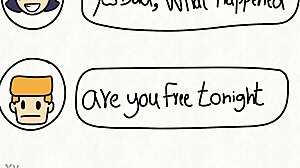 What happened
are you free tonight